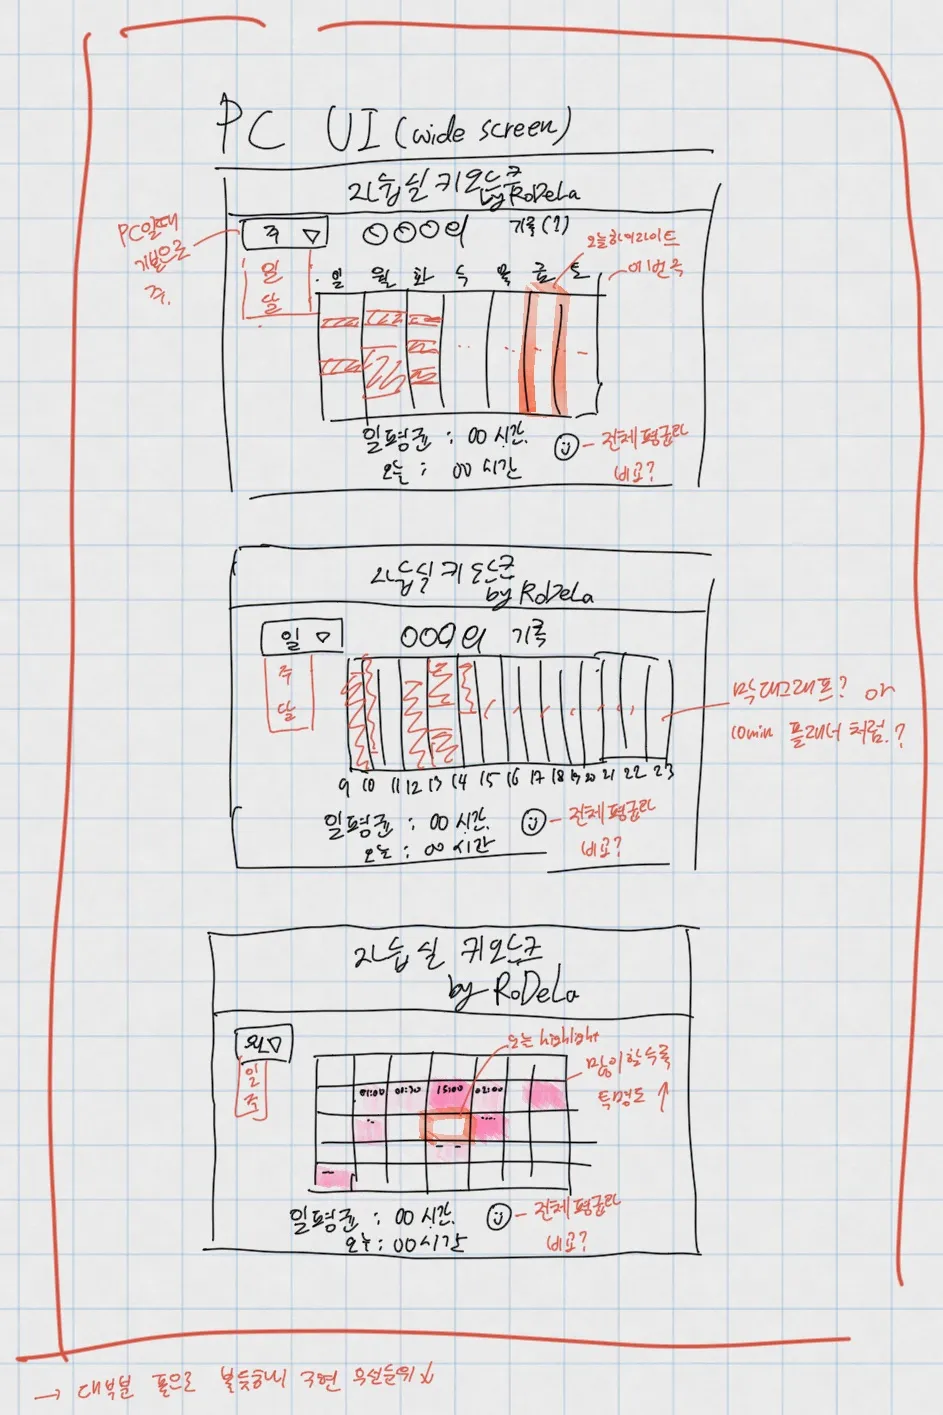 PC UI (wide screen)
자습실 키오스크
by RoDeLa
PC일때
기본으로
주.
주 ▽
일
달
OOO의 기록(?)
오늘하이라이트
이번주
일 월 화 수 목 금 토
일평균 : 00 시간.
오늘 : 00 시간
전체평균과
비교?
자습실 키오스크
by RoDeLa
일 ▽
주
달
OOO의 기록
막대그래프? or
10min 플래너처럼.?
9 10 11 12 13 14 15 16 17 18 19 20 21 22 23
일평균 : 00 시간.
오늘 : 00 시간
전체평균과
비교?
자습실 키오스크
by RoDeLa
월▽
일
주
오늘 highlight
많이할수록
투명도 ↑
01:00 01:30 15:00 02:00
일평균 : 00 시간.
오늘 : 00시간
전체평균과
비교?
→ 대부분 폰으로 볼듯하니 구현 우선순위 X